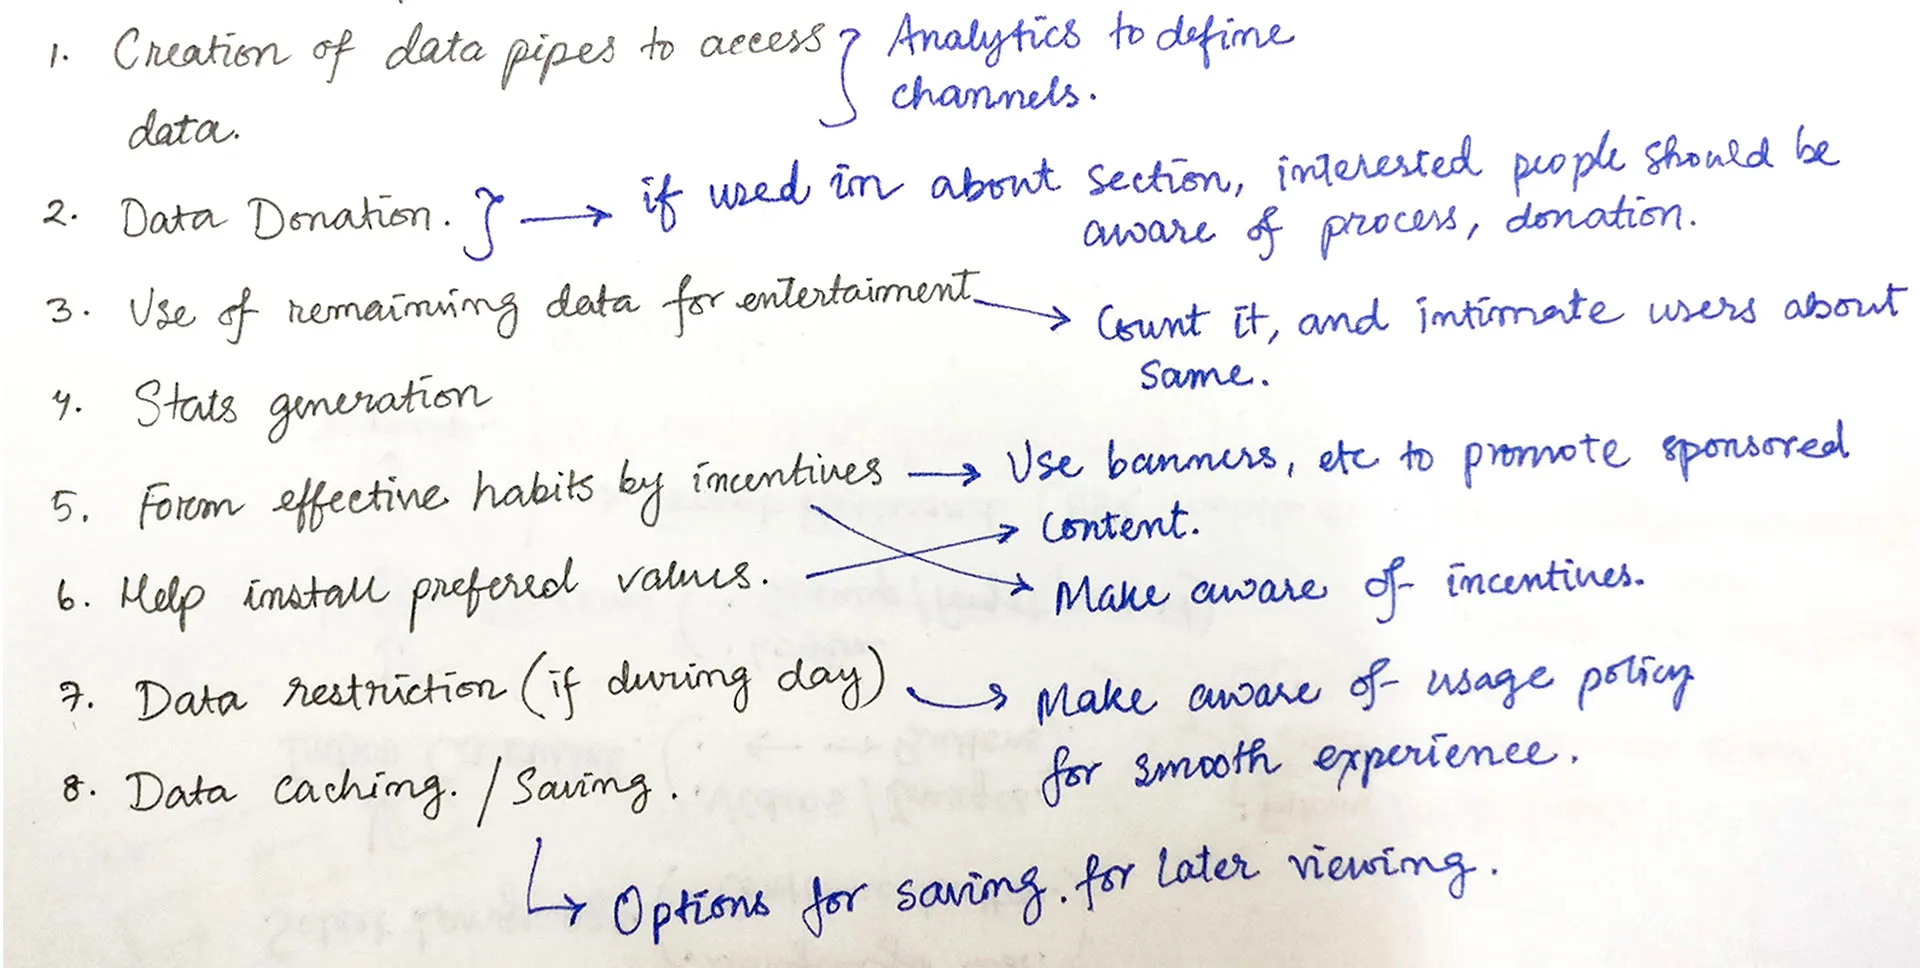 1. Creation of data pipes to access } Analytics to define
data. channels.
2. Data Donation. } → if used in about section, interested people should be
aware of process, donation.
3. Use of remaining data for entertainment → Count it, and intimate users about
same.
4. Stats generation
5. Form effective habits by incentives → Use banners, etc to promote sponsored
→ Content.
6. Help install prefered values. → Make aware of incentives.
7. Data restriction (if during day) → Make aware of usage policy
for smooth experience.
8. Data caching. / Saving.
↳ Options for saving. for later viewing.